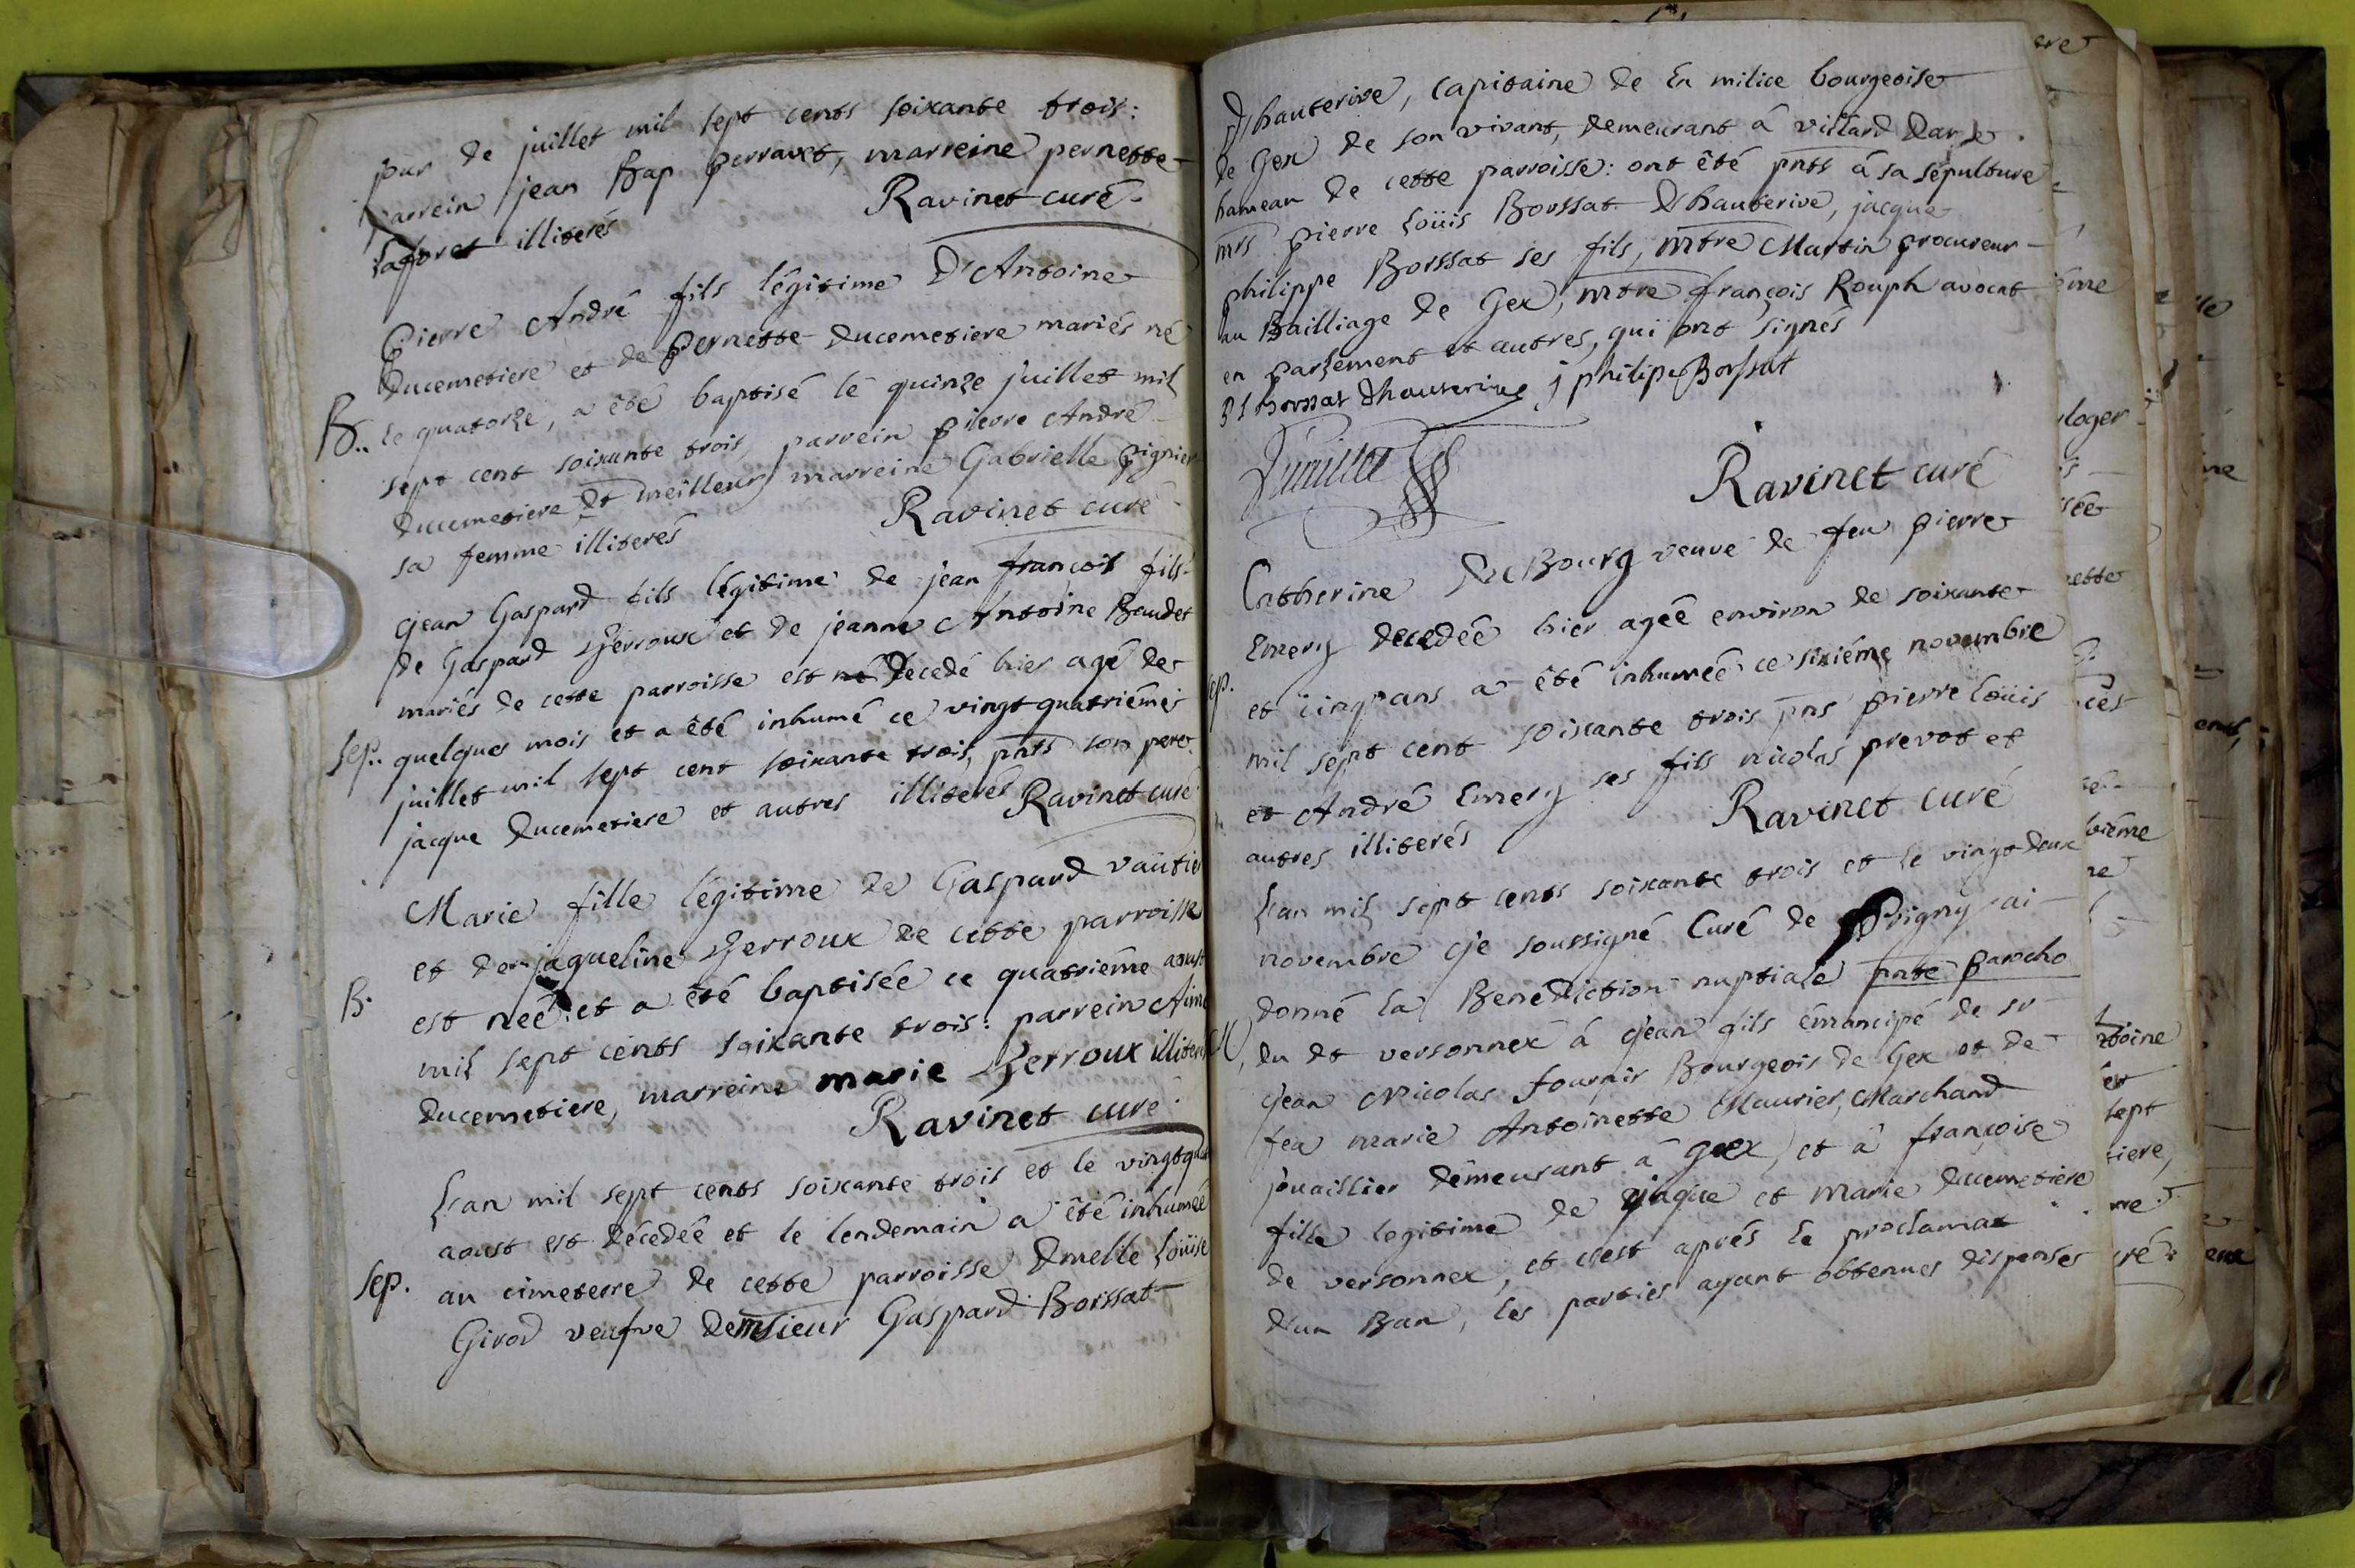 pur de juillet mil sept cents soixante trois:
parrein jean Bap perravet, marreine pernette
laforet illiterés Ravinet curé
Pierre André fils légitime D'Antoine
ducemetiere et de Pernette ducemetiere mariés né
B.. le quatorze, a êté baptisé le quinze juillet mil
sept cent soixante trois, parrein pierre André
ducemetiere dt meilleur marreine Gabrielle pignier
sa femme illiterés Ravinet curé
jean Gaspard fils légitime de jean françois fils
de Gaspard Perroux et de jeanne Antoine Baudet
mariés de cette parroisse est né decedé hier agé de
Sep.. quelques mois et a êté inhumé ce vingt quatriémes
juillet mil sept cent soixante trois, pnts son pere
jacque ducemetiere et autres illiterés Ravinet curé
Marie fille légitime de Gaspard vautier
et de jaqueline Perroux de cette parroisse
B. est neé et a êté baptisée ce quatriême aoust
mil sept cents soixante trois: parrein Aimé
ducemetiere, marreine marie Perroux illiteré
Ravinet curé
L'an mil sept cents soixante trois et le vingt
aoust est décedée et le lendemain a êté inhumeé
Sep. au cimeterre de cette parroisse dmelle Loüise
Girod veufve de msieur Gaspard Borssat
Dhauterive, capitaine de la milice bourgeoise
de Gex de son vivant, demeurant â villard
hameau de cette parroisse: ont êté pnts á sa sépulture
mrs pierre Loüis Borssat Dhauterive, jacque
philippe Borssat ses fils, mtre Martin procureur
au Bailliage de Gex, mtre françois Rouph avocat
en parlement et autres, qui ont signés
P L borssat Dhauterive j philipe Borssat
Ravinet curé
Catherine DuBourg veuve de feu pierre
Emery decedeé hier ageé environ de soixante
Sep. et cinq ans a êté inhumeé ce sixiéme novembre
mil sept cent soixante trois pns pierre Loüis
et André Emery ses fils nicolas prevot et
autres illiterés Ravinet curé
L'an mil sept cents soixante trois et le vingt deux
novembre je soussigné Curé de Prigny ai
donné la Benediction nuptiale pnte parocho
M, du dt versonnex á jean fils émancipé de sr
jean Nicolas fournir Bourgeois de Gex et de
feu marie Antoinette Maurier, Marchand
jouaillier demeurant a gex, et â françoise
fille legitime de jaque et marie ducemetiere
de versonnex, et c'est aprés la proclamat
d'un Ban, les parties ayant obtenues dispenses